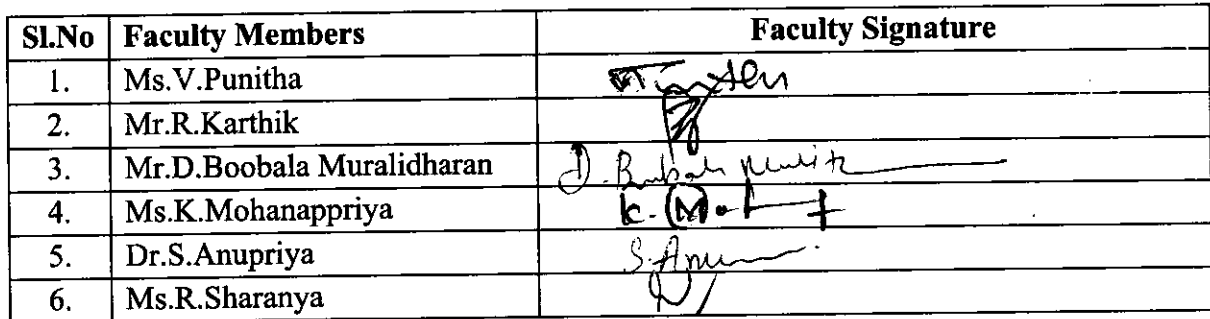 Sl.No Faculty Members Faculty Signature
1. Ms.V.Punitha
2. Mr.R.Karthik
3. Mr.D.Boobala Muralidharan D.
4. Ms.K.Mohanappriya K.
5. Dr.S.Anupriya S.Anu
6. Ms.R.Sharanya